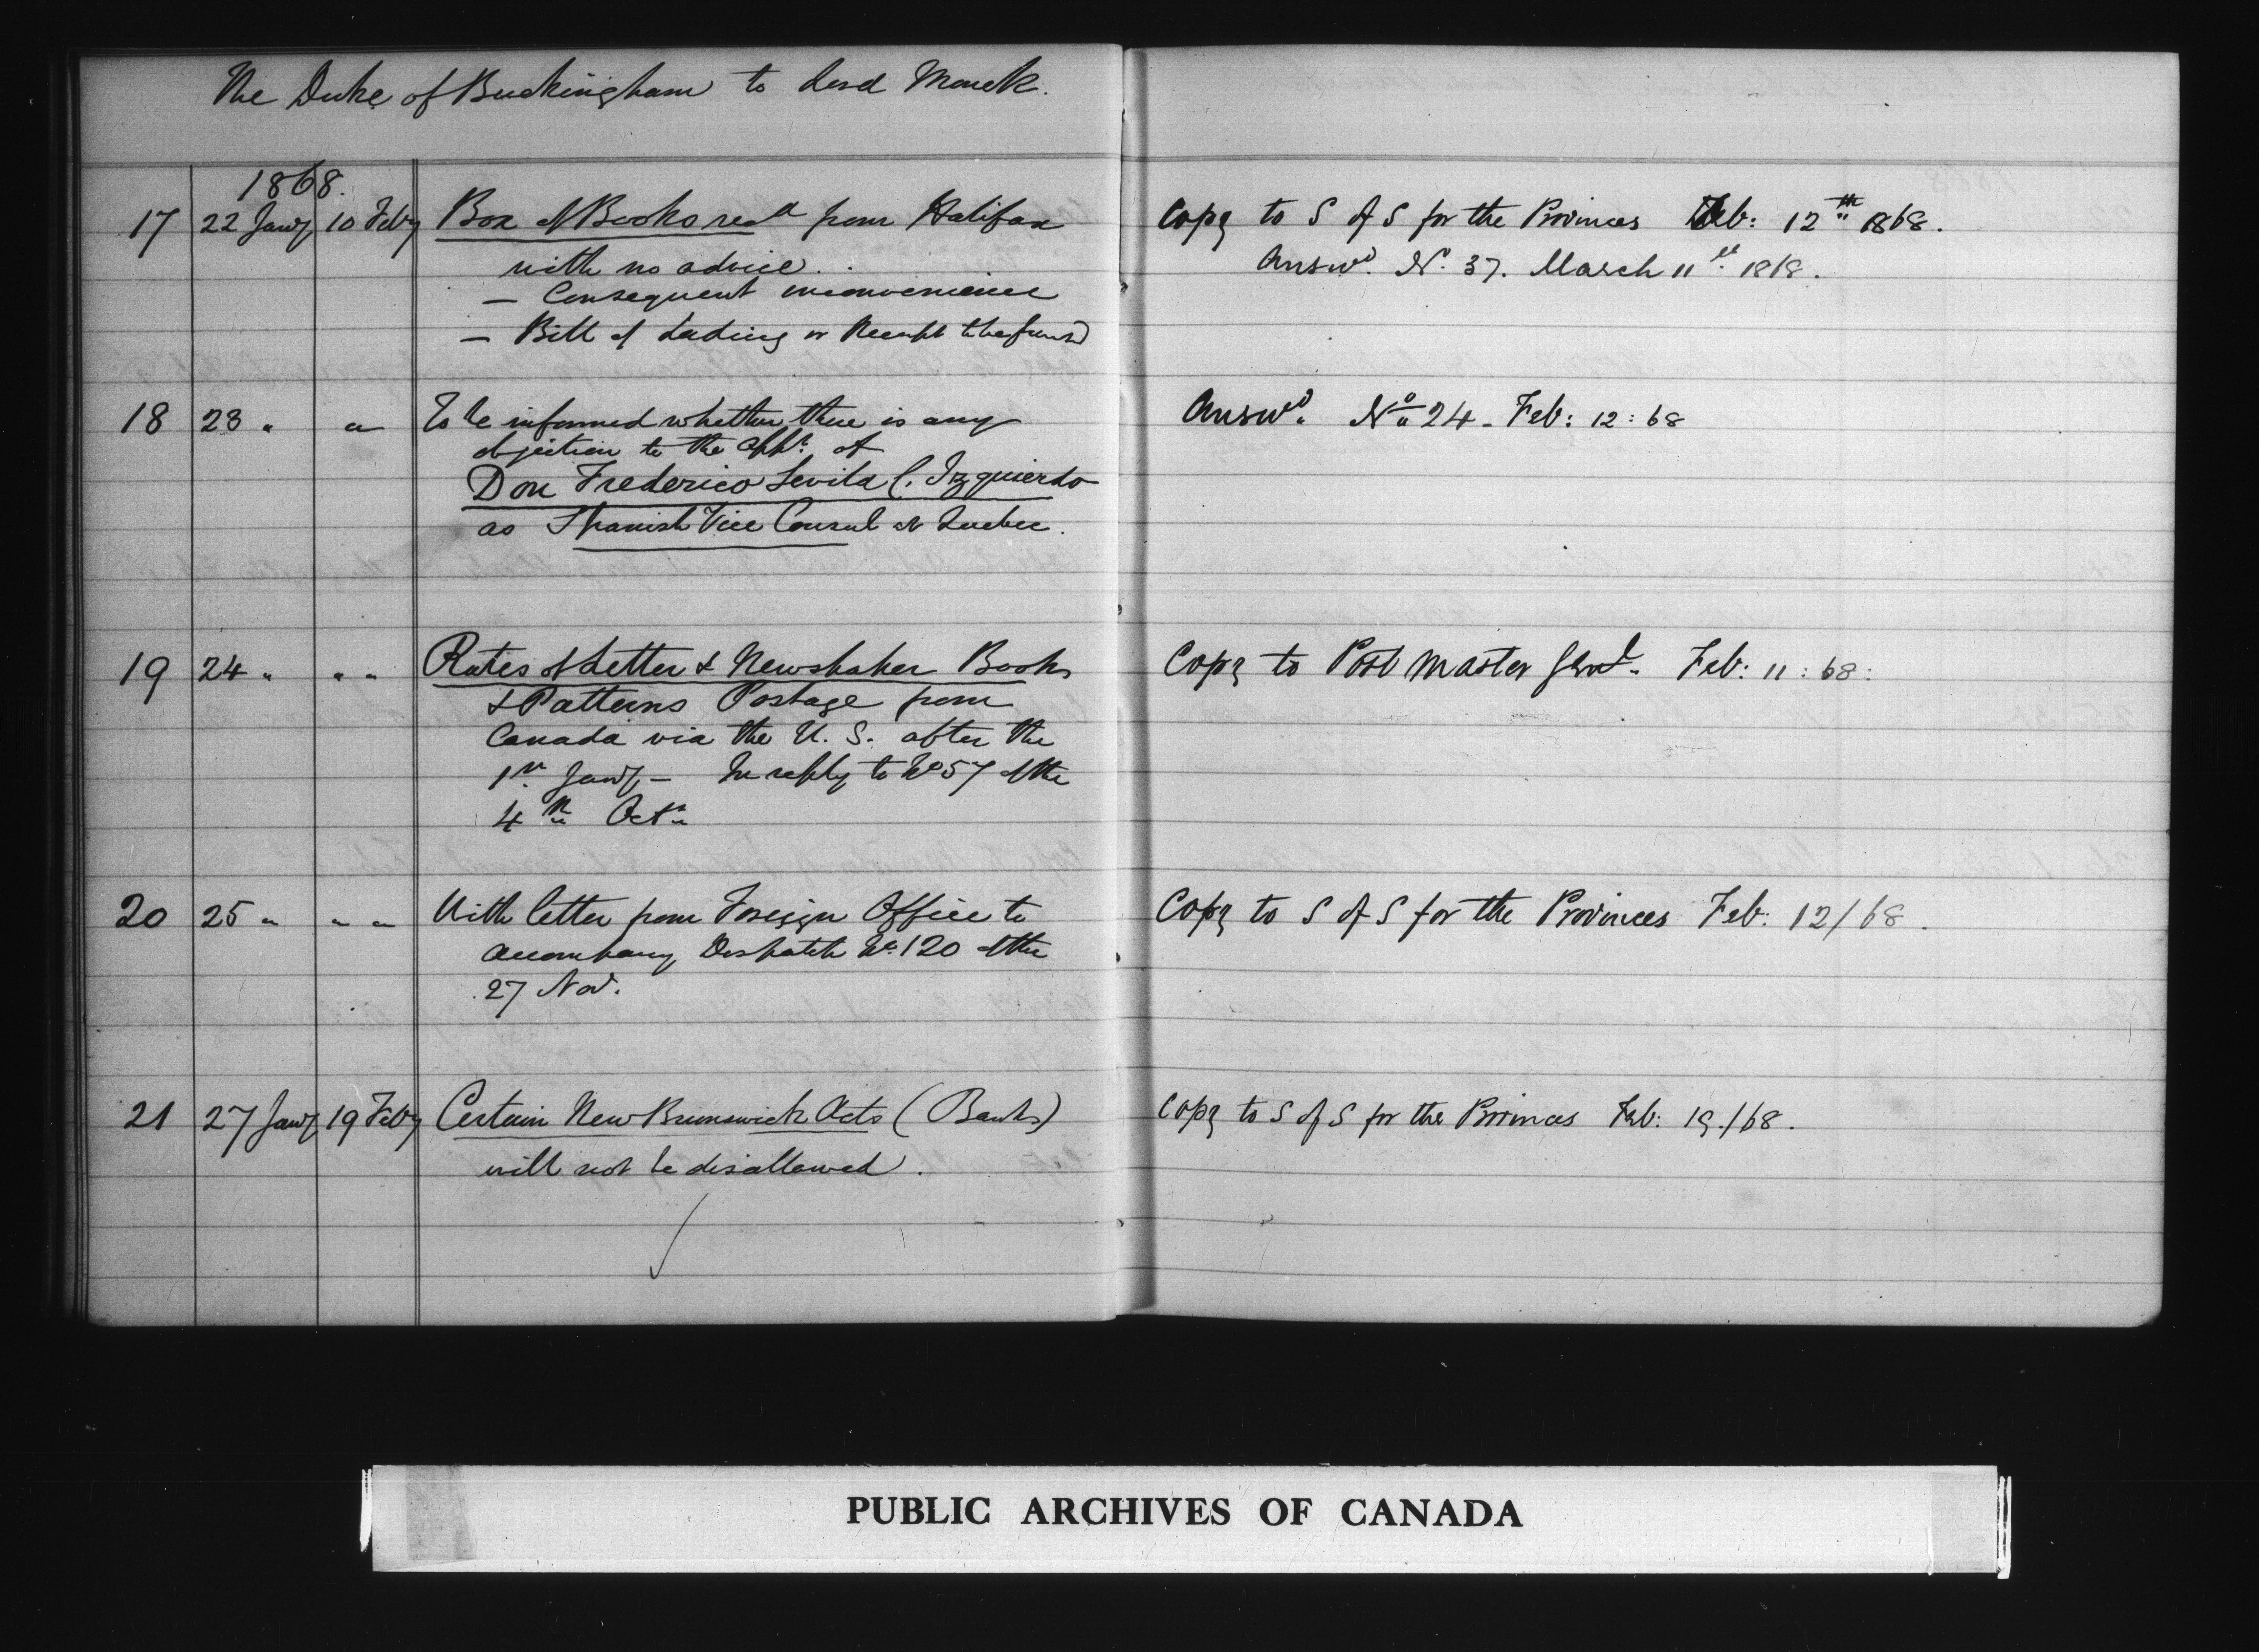 The Duke of Buckingham to Lord Monck.
1868.
17 22 Jany 10 Feby Box of Books recd from Halifax Copy to S of S for the Provinces Feb: 12th 1868.
with no advice. Answd. No. 37. March 11th 1868.
— Consequent inconvenience
— Bill of Lading or Receipt to be furnd
18 23 " " To be informed whether there is any Answd. No 24 - Feb: 12 : 68
objection to the appt. of
Don Frederico Sevila C. Izquierdo
as Spanish Vice Consul at Quebec.
19 24 " " " Rates of Letter & Newspaper Book Copy to Post Master Genl. Feb: 11 : 68 :
& Patterns Postage from
Canada via the U. S. after the
1st Jany — In reply to No 57 of the
4th Octr
20 25 " " " With letter from Foreign Office to Copy to S of S for the Provinces Feb: 12/68.
accompany Despatch No. 120 of the
27 Nov.
21 27 Jany 19 Feby Certain New Brunswick Acts (Banks) Copy to S of S for the Provinces Feb: 19./68.
will not be disallowed.
PUBLIC ARCHIVES OF CANADA